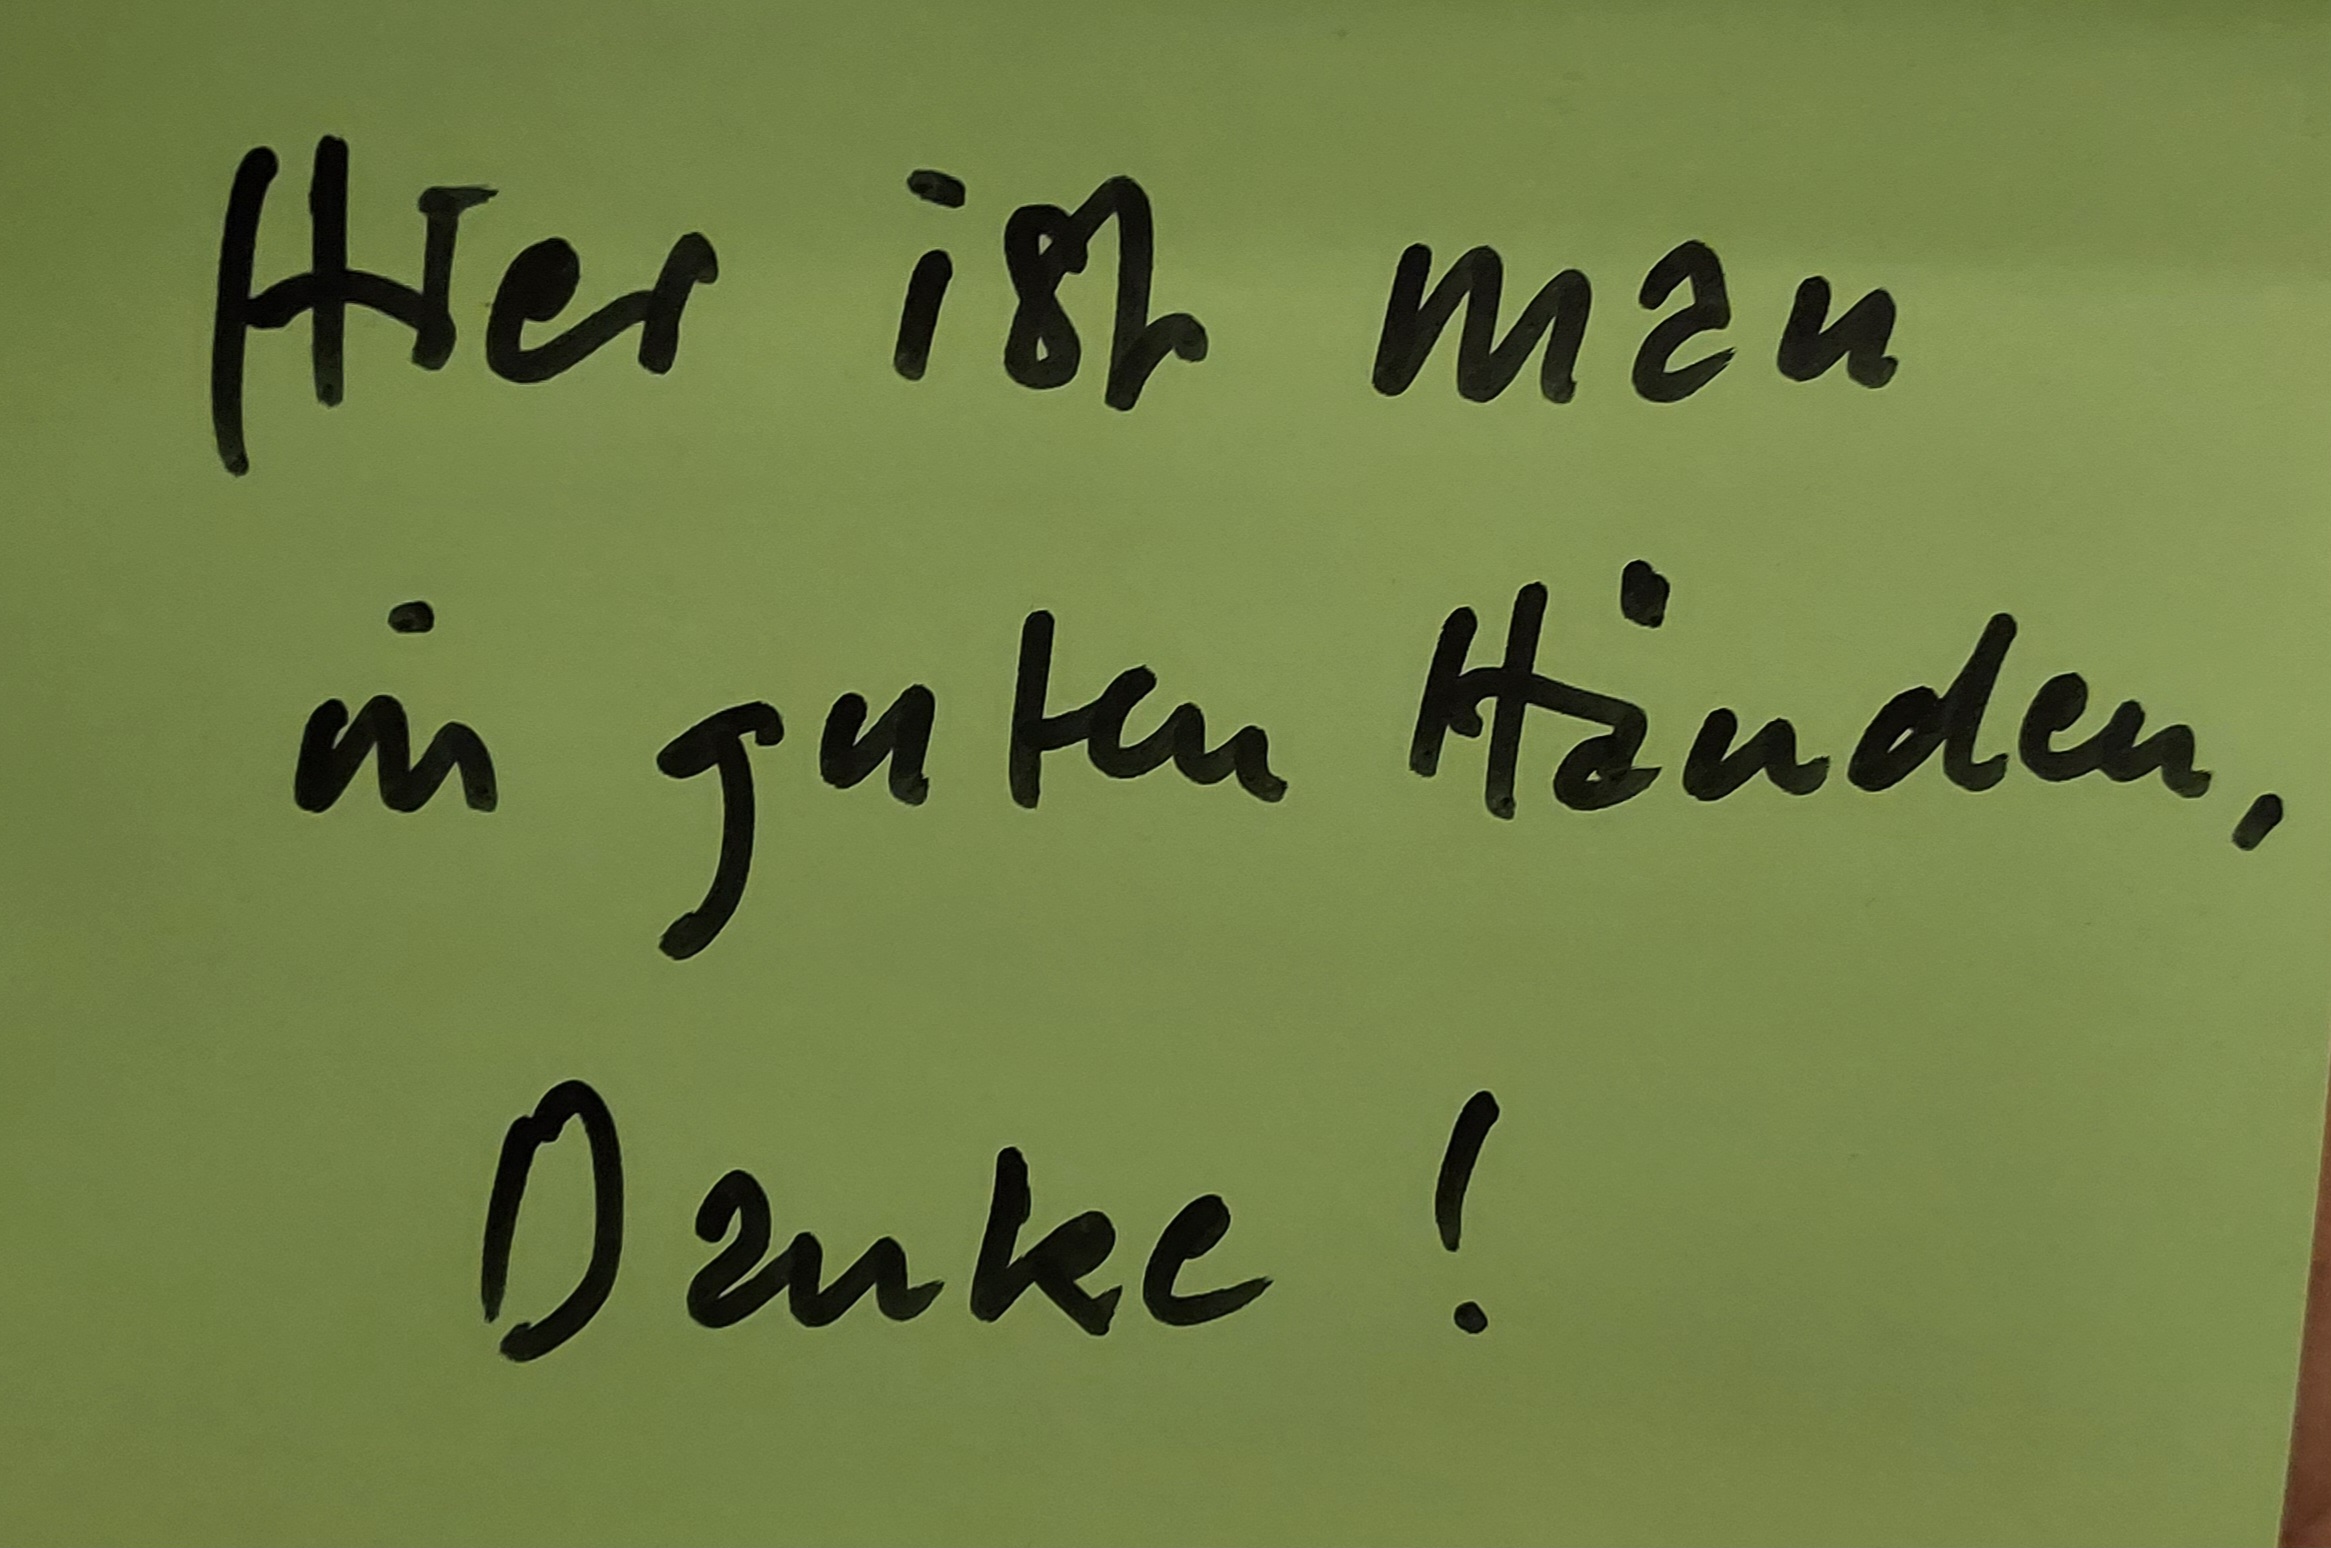 Hier ist man
in guten Händen,
Danke !